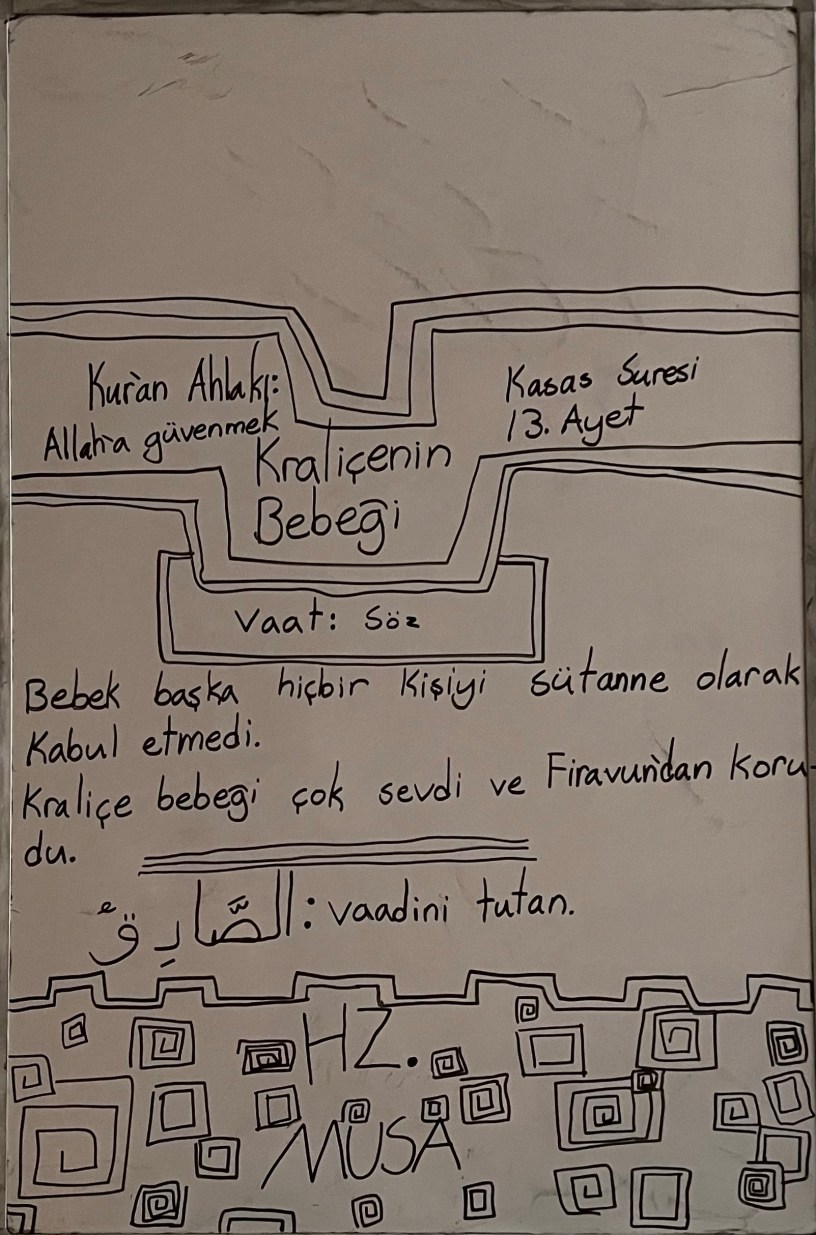 Kur'an Ahlakı:
Allah'a güvenmek
Kasas Suresi
13. Ayet
Kraliçenin
Bebeği
Vaat: Söz
Bebek başka hiçbir kişiyi sütanne olarak
Kabul etmedi.
Kraliçe bebeği çok sevdi ve Firavun'dan koru-
du.
الصَّادِقُ: vaadini tutan.
HZ.
MUSA